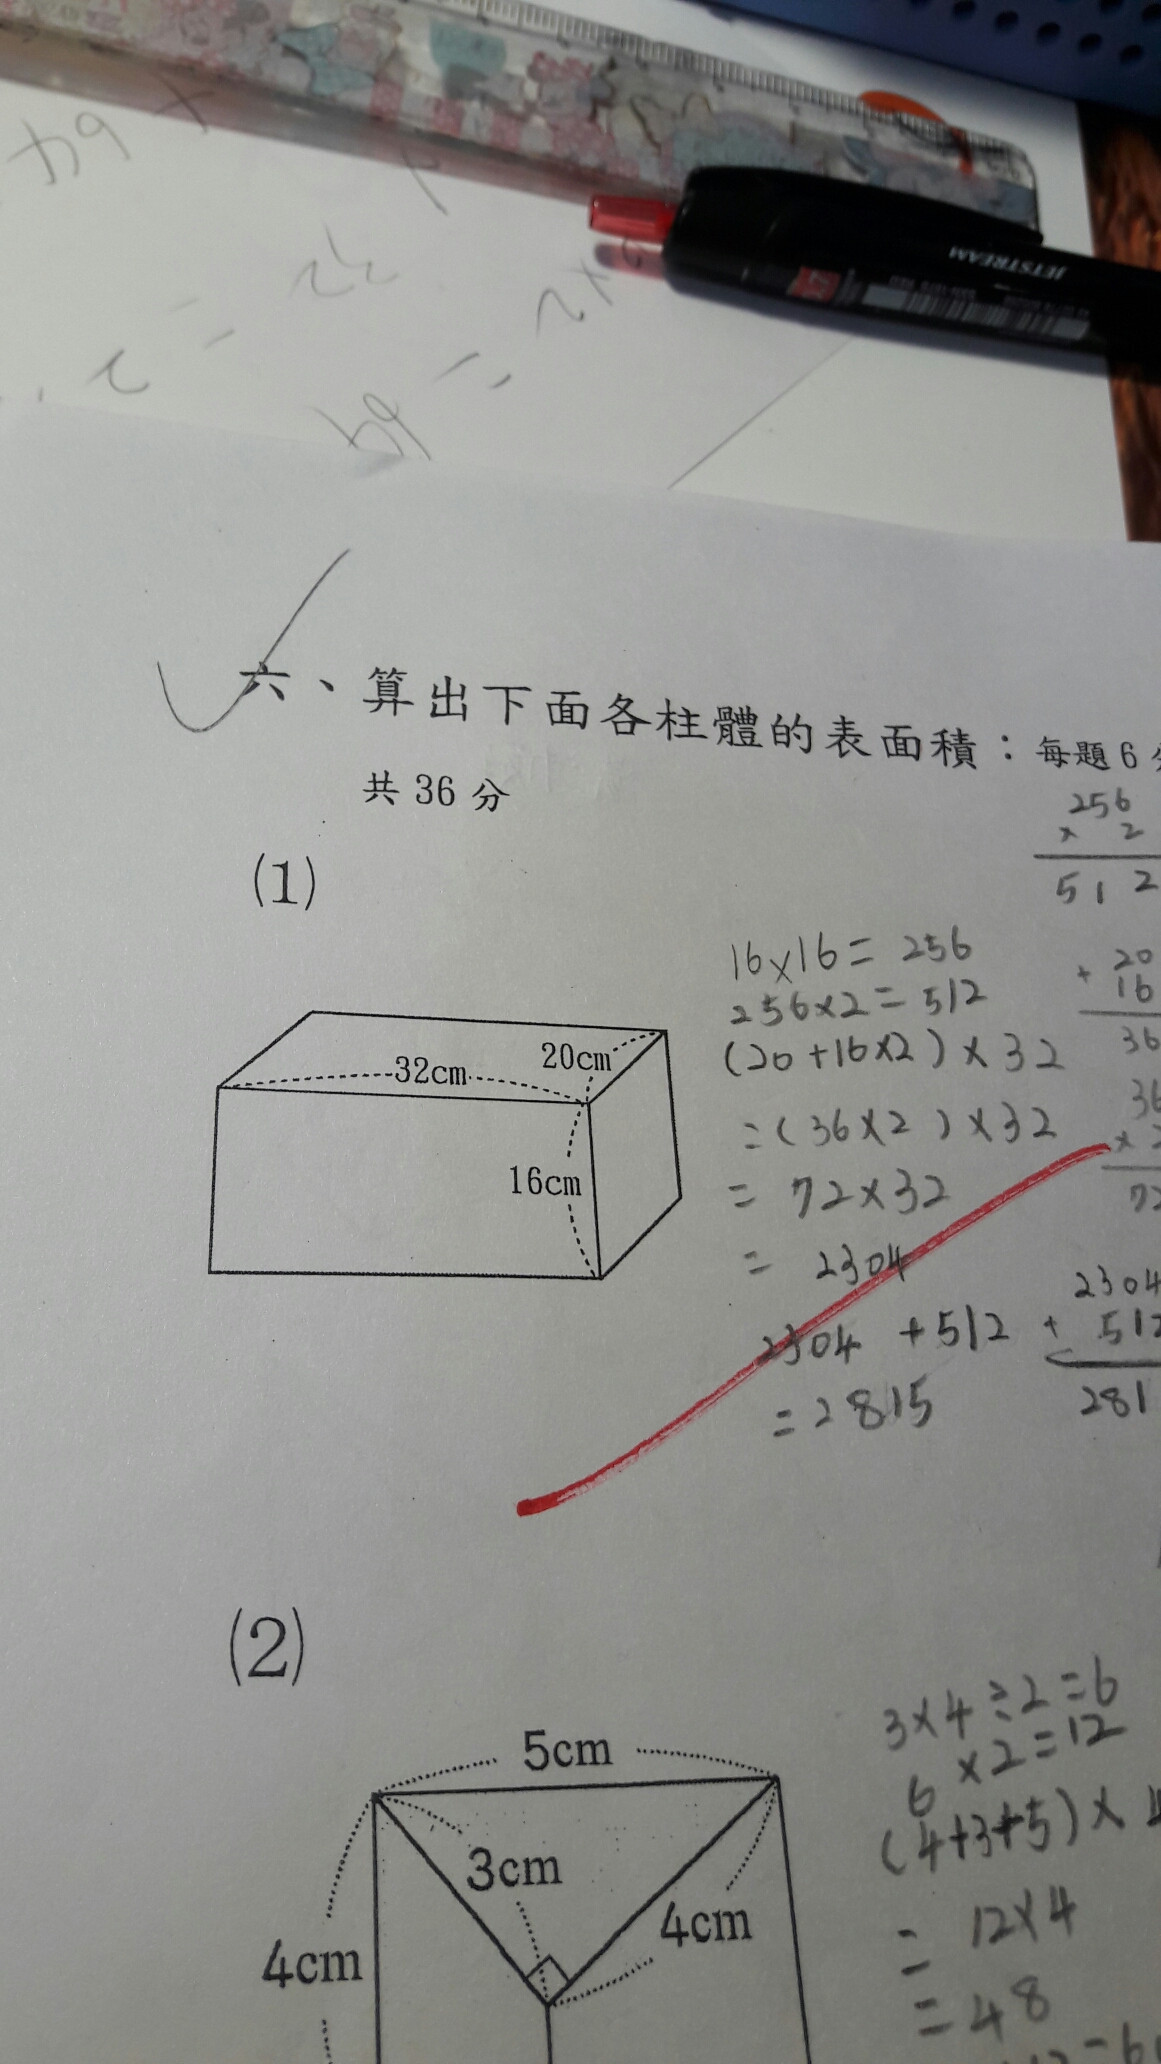 JETSTREAM
六、算出下面各柱體的表面積：每題6分
共36分
256
× 2
512
(1)
16×16=256
256×2=512
(20+16×2)×32
=(36×2)×32
=72×32
=2304
2304+512
=2815
+ 20
16
36
36
72
2304
+ 512
281
32cm
20cm
16cm
(2)
3×4÷2=6
6×2=12
(4+3+5)×4
=12×4
=48
5cm
3cm
4cm
4cm